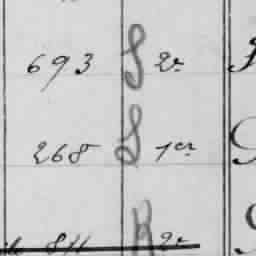 693 S 2e
268 S 1er
811 R 2e